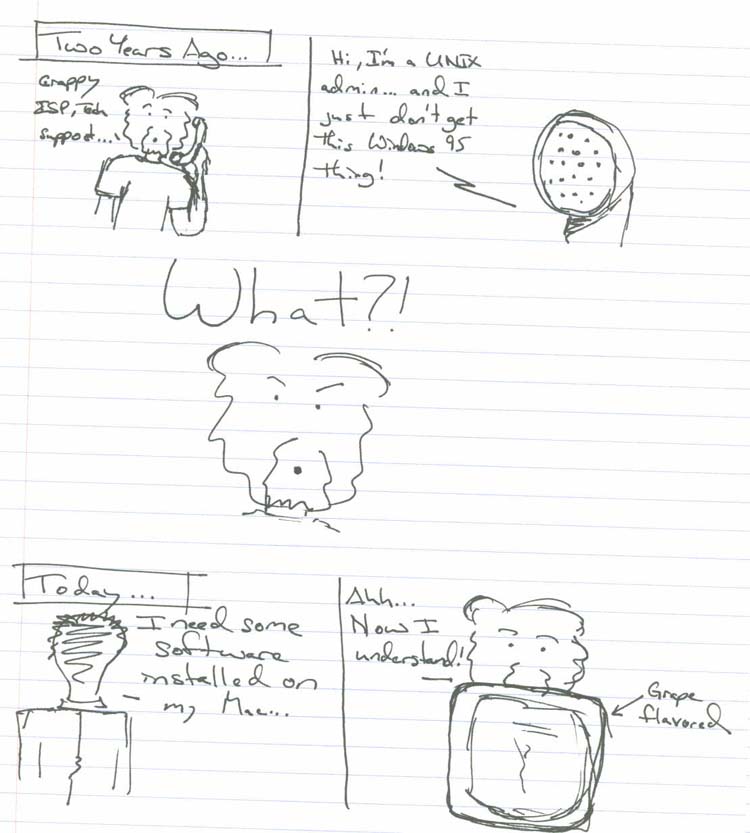 Two Years Ago...
Crappy
ISP, Tech
support...
Hi, I'm a UNIX
admin... and I
just don't get
this Windows 95
thing!
What?!
Today...
I need some
software
installed on
my Mac...
Ahh...
Now I
understand!
Grape
flavored